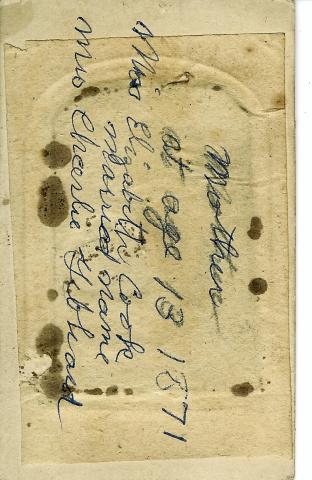 Mother
at age 13 1871
Miss Elizabeth Cook
married name
Mrs Charlie Gebhard